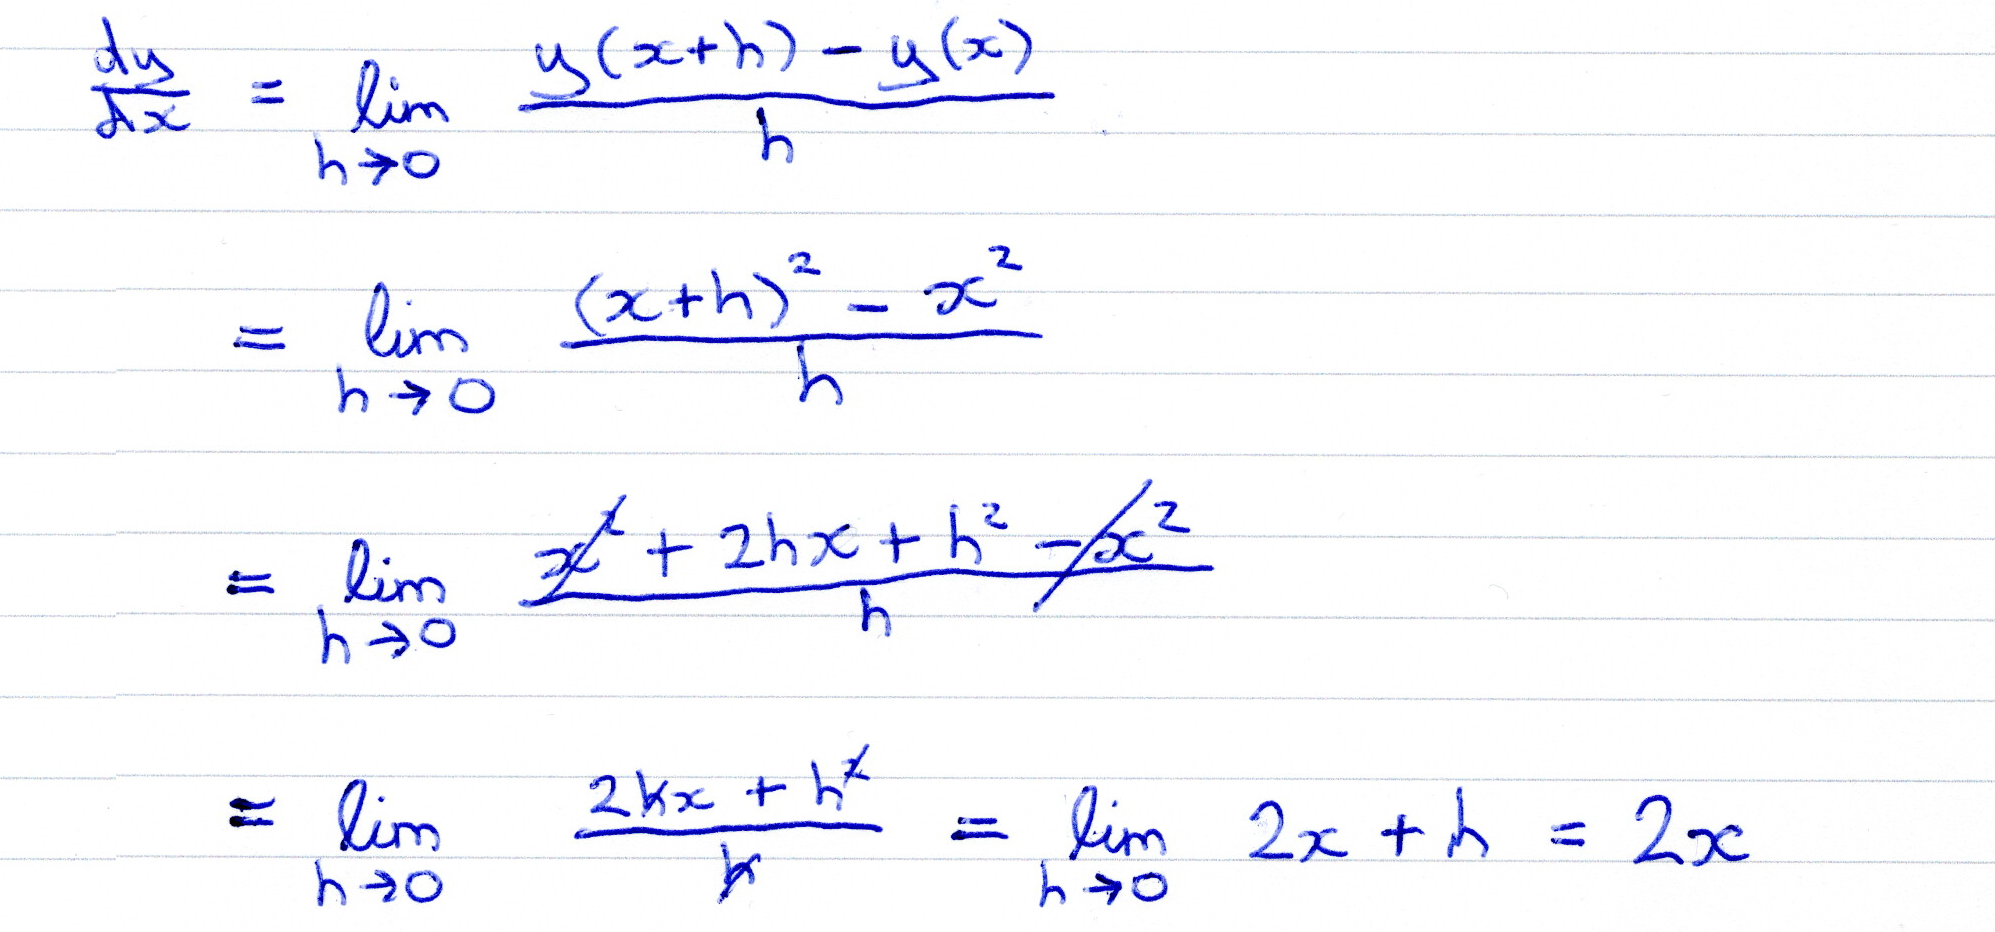 dy/dx = lim h→0 (y(x+h) - y(x))/h
= lim h→0 ((x+h)² - x²)/h
= lim h→0 (x² + 2hx + h² - x²)/h
= lim h→0 (2hx + h²)/h = lim h→0 2x + h = 2x